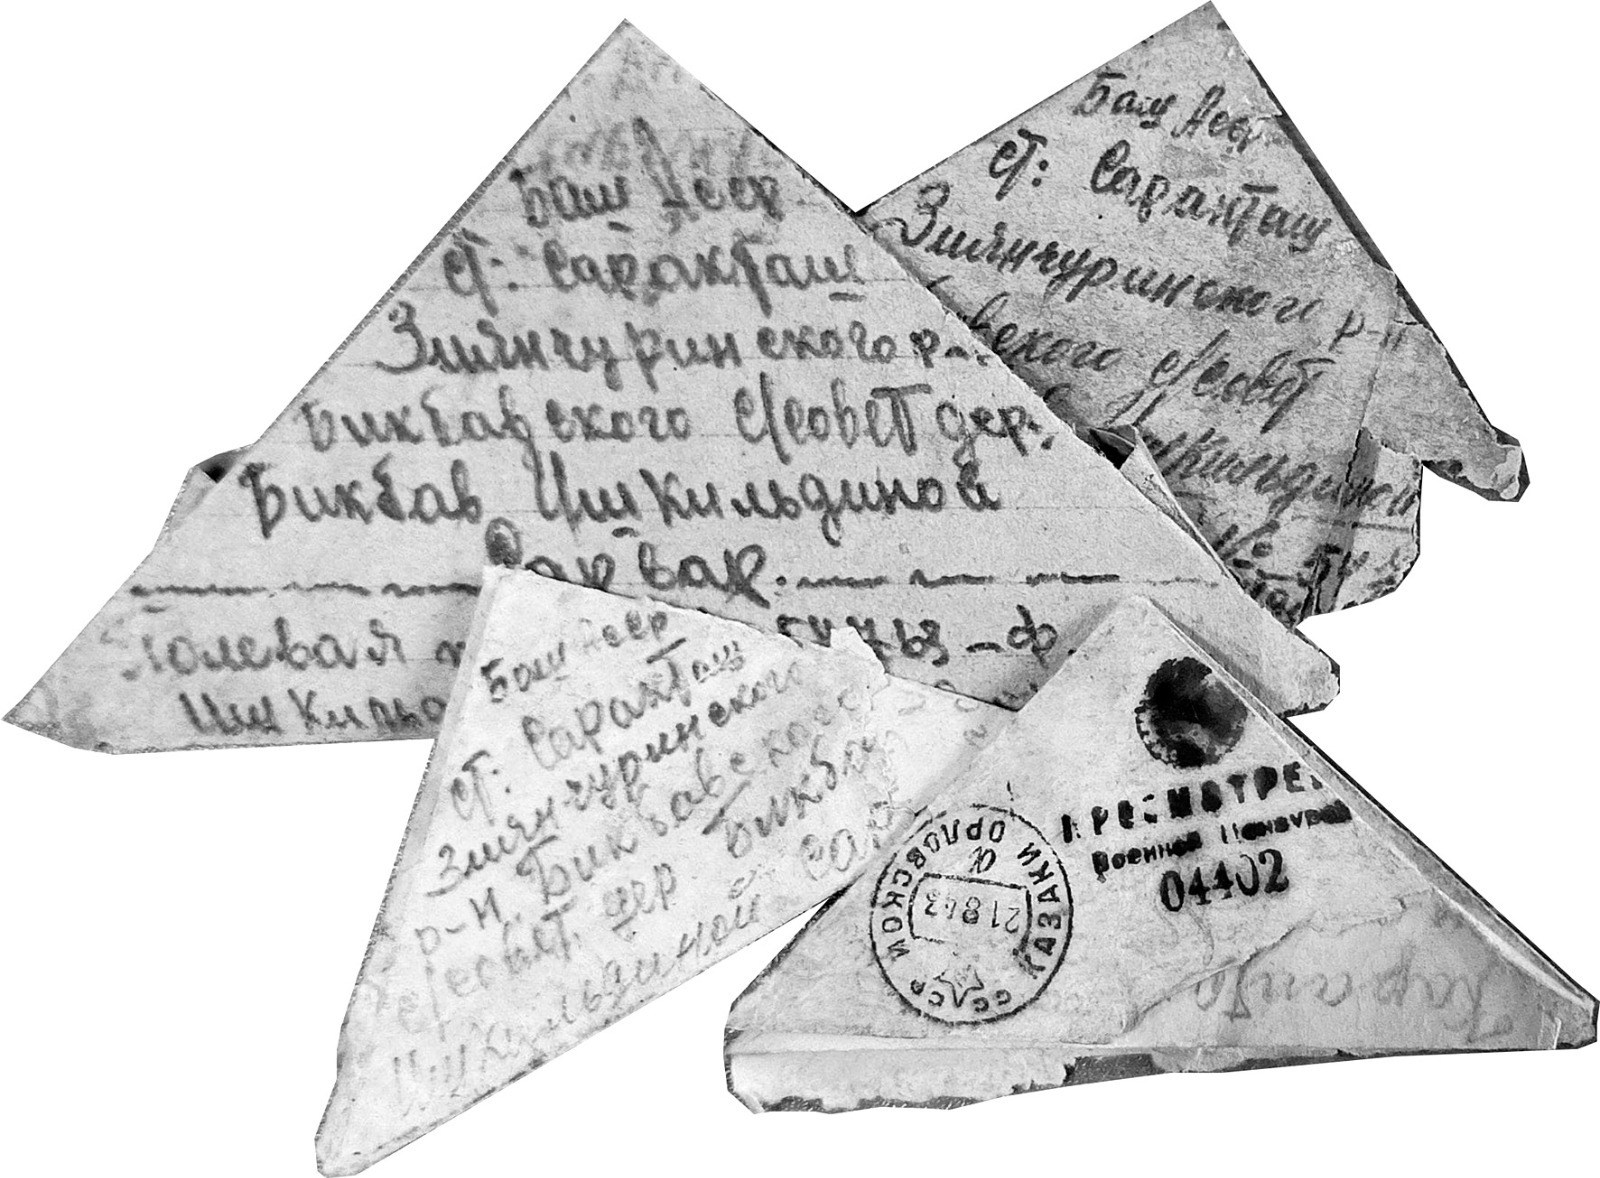 Баш Асср
ст: Саракташ
Зиянчуринского р-
Бикбавского с/совет дер.
Бикбав Ишкильдиной
Сарвар.
Полевая
Ишкильд
Баш Асср
ст: Саракташ
Зиянчуринского р-н
вского с/совет
шкильдиной
Баш Асср
ст: Саракташ
Зиянчуринского
р-н Бикбавского
с/совет. дер Бикбав
Ишкильдиной Сар
ПРОСМОТРЕ
Военной Цензурой
04402
КАЗАКИ ОРЛОВСКОЙ
СССР
21 8 43